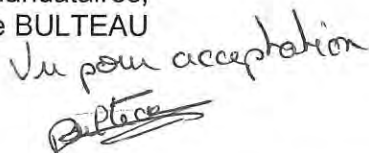 BULTEAU
Vu pour acceptation
Bulteau